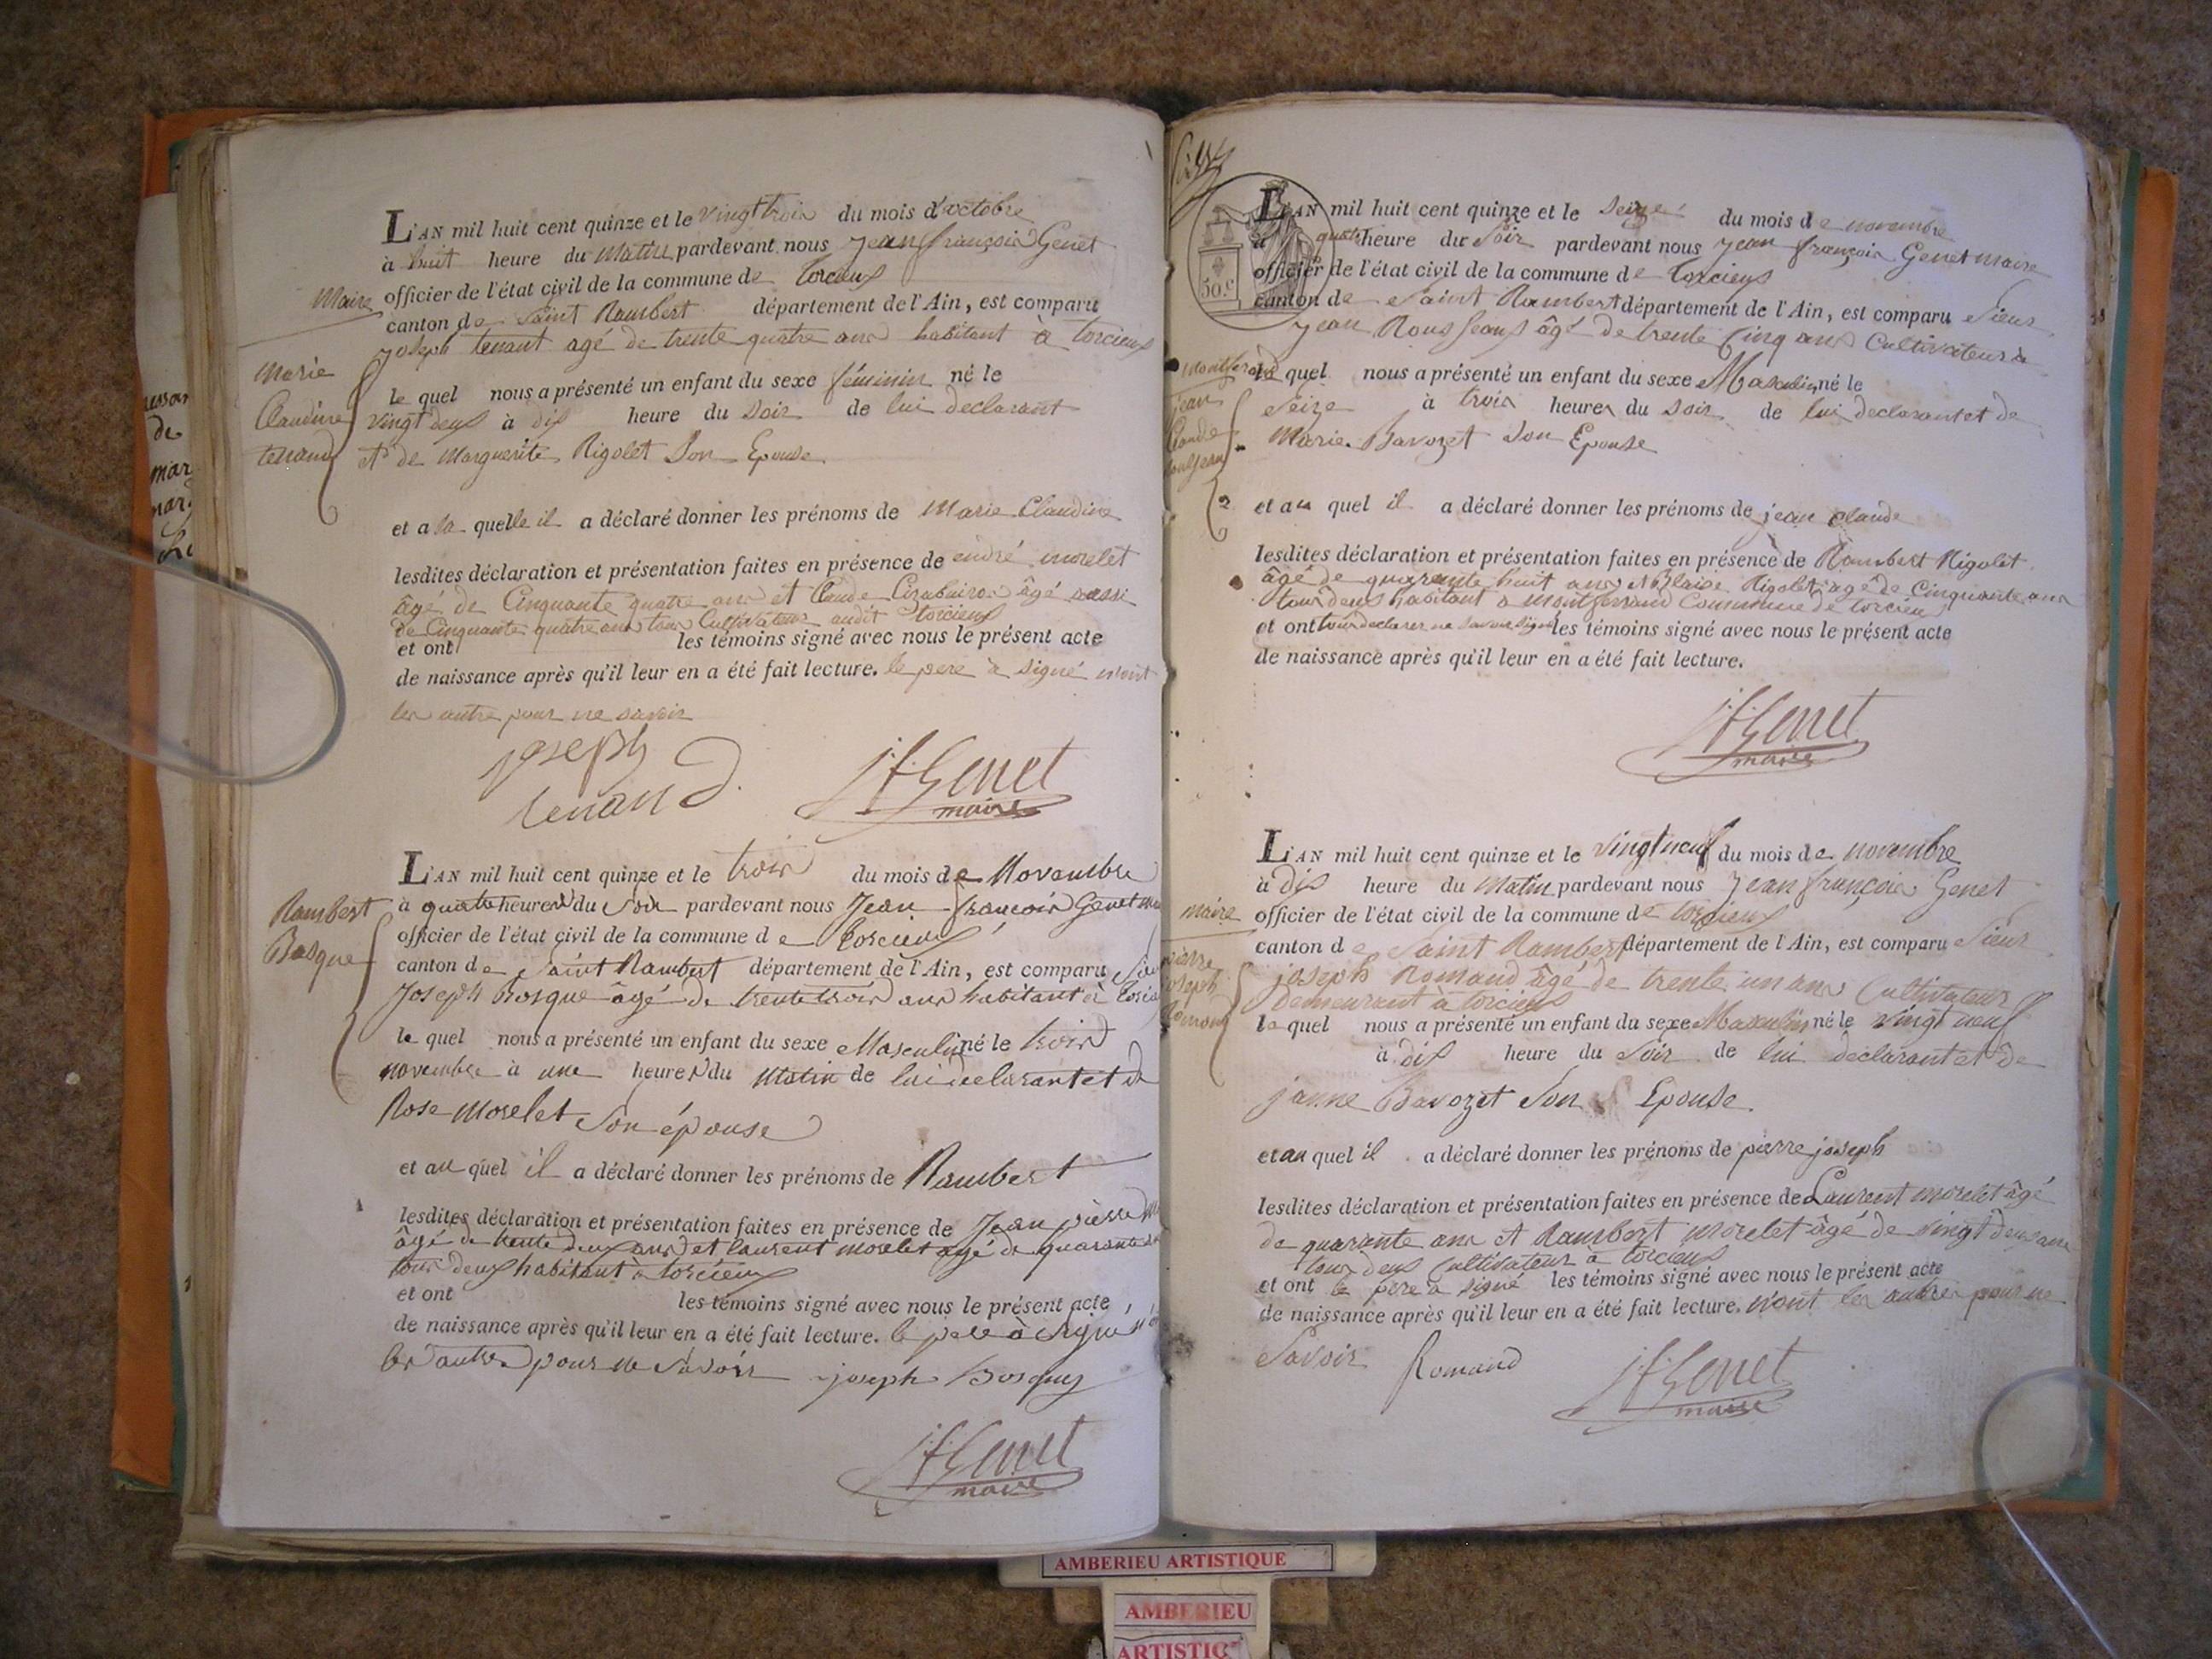 L'AN mil huit cent quinze et le vingt trois du mois d'octobre
à huit heure du Matin pardevant nous jean françois Genet
Maire officier de l'état civil de la commune de torcieux
canton de Saint Rambert département de l'Ain, est comparu
joseph tenant agé de trente quatre ans habitant à torcieux
Marie
Claudine
tenand
le quel nous a présenté un enfant du sexe féminin né le
vingt deux à dix heure du soir de lui declarant
et de Marguerite Rigolet Son Epouse
et a la quelle il a déclaré donner les prénoms de Marie Claudine
lesdites déclaration et présentation faites en présence de andré morelet
âgé de Cinquante quatre ans et Claude âgé aussi
de Cinquante quatre ans tous Cultivateurs audit torcieux
et ont les témoins signé avec nous le présent acte
de naissance après qu'il leur en a été fait lecture. le pere à signé n'ont
les autre pour ne savoir
joseph
tenand
jf Genet
maire
L'AN mil huit cent quinze et le trois du mois de Novembre
Rambert
Bosque
à quatre heures du Soir pardevant nous Jean françois Genet
officier de l'état civil de la commune de torcieux
canton de Saint Rambert département de l'Ain, est comparu
Joseph bosque âgé de trente trois ans habitant à
le quel nous a présenté un enfant du sexe Masculin né le trois
novembre à une heures du Matin de lui declarant et de
Rose Morelet Son épouse
et au quel il a déclaré donner les prénoms de Rambert
lesdites déclaration et présentation faites en présence de Jean pierre
âgé de trente deux ans et laurent morelet agé de quarante
tous deux habitant à torcieux
et ont les témoins signé avec nous le présent acte
de naissance après qu'il leur en a été fait lecture. le pere à signé
les autres pour ne Savoir joseph Bosque
jf Genet
maire
50.c
L'AN mil huit cent quinze et le seize du mois de novembre
à quatre heure du Soir pardevant nous jean françois Genet maire
officier de l'état civil de la commune de torcieux
canton de Saint Rambert département de l'Ain, est comparu Sieur
jean Rousseaux âgé de trente Cinq ans Cultivateur à
montferrand
jean
Claude
le quel nous a présenté un enfant du sexe Masculin né le
Seize à trois heures du soir de lui declarant et de
Marie Bavozet Son Epouse
et au quel il a déclaré donner les prénoms de jean claude
lesdites déclaration et présentation faites en présence de Rambert Rigolet
âgé de quarante huit ans et Blaise Rigolet agé de Cinquante ans
tous deux habitant a montferrand Commune de torcieu
et ont tous declarer ne savoir signer les témoins signé avec nous le présent acte
de naissance après qu'il leur en a été fait lecture.
jf Genet
maire
L'AN mil huit cent quinze et le vingt neuf du mois de novembre
à dix heure du Matin pardevant nous jean françois Genet
maire officier de l'état civil de la commune de torcieux
canton de Saint Rambert département de l'Ain, est comparu Sieur
joseph Romand âgé de trente un ans Cultivateur
demeurant à torcieux
pierre
joseph
Romand
le quel nous a présenté un enfant du sexe Masculin né le vingt neuf
à dix heure du Soir de lui declarant et de
janne Bavozet Son Epouse
et au quel il a déclaré donner les prénoms de pierre joseph
lesdites déclaration et présentation faites en présence de Laurent morelet âgé
de quarante ans et Rambert morelet âgé de vingt deux ans
tous deux Cultivateur à torcieux
et ont le pere à signé les témoins signé avec nous le présent acte
de naissance après qu'il leur en a été fait lecture. n'ont les autres pour ne
Savoir Romand
jf Genet
maire
AMBERIEU ARTISTIQUE
AMBERIEU